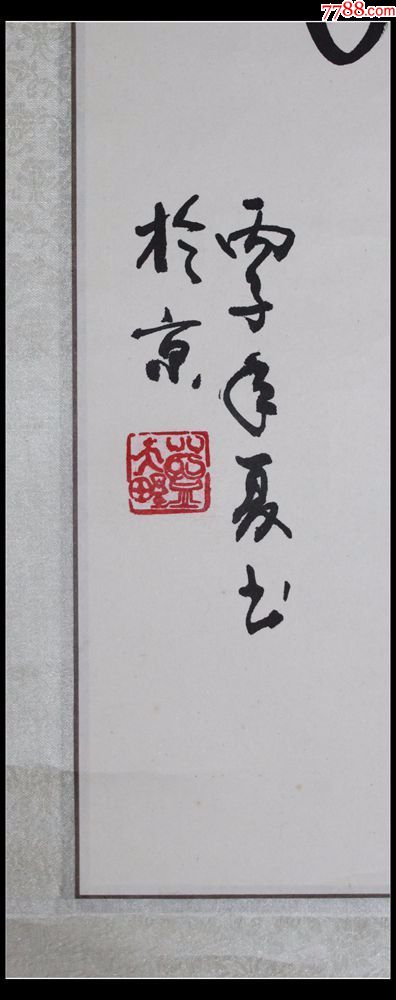 7788.com
丙子年夏书
於京